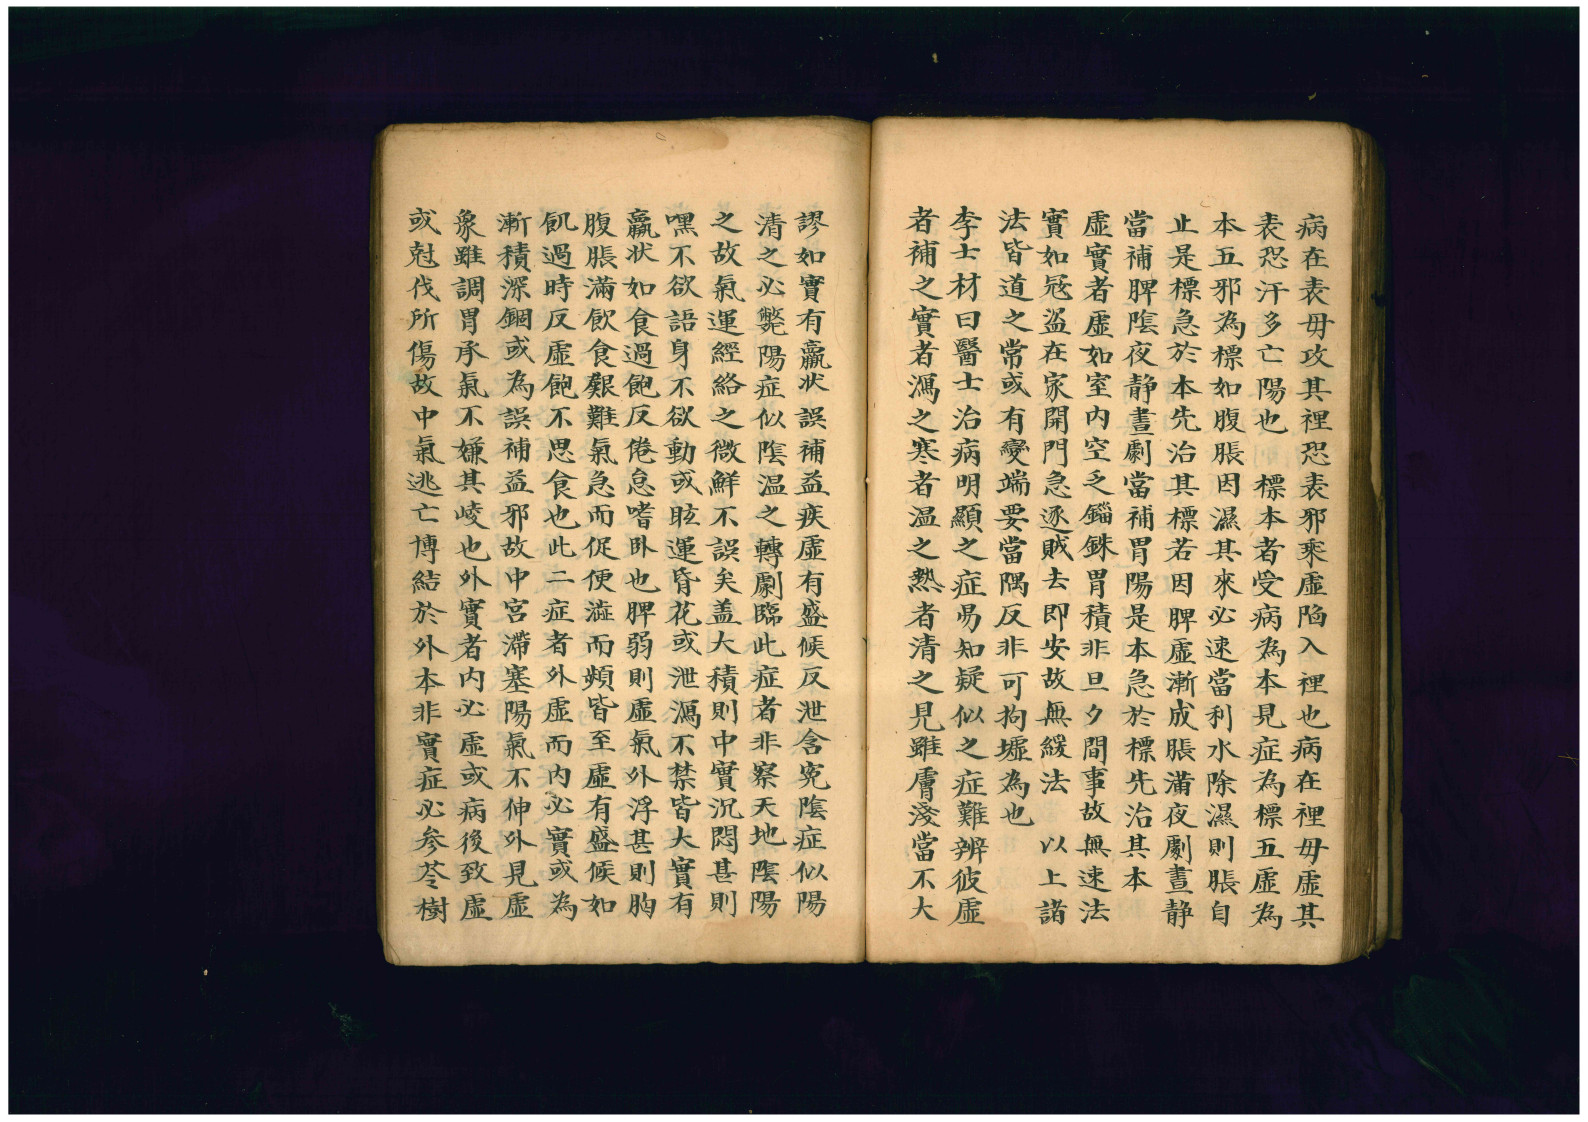 病在表毋攻其裡恐表邪乘虛陷入裡也病在裡毋虛其
表恐汗多亡陽也 標本者受病為本見症為標五虛為
本五邪為標如腹脹因濕其來必速當利水除濕則脹自
止是標急於本先治其標若因脾虛漸成脹滿夜劇晝靜
當補脾陰夜靜晝劇當補胃陽是本急於標先治其本
虛實者虛如室内空乏錙銖胃積非旦夕間事故無速法
實如冦盜在家開門急逐賊去即安故無緩法 以上諸
法皆道之常或有變端要當隅反非可拘墟為也
李士材曰醫士治病明顯之症昜知疑似之症難辨彼虛
者補之實者瀉之寒者温之熱者清之見雖膚淺當不大
謬如實有羸状誤補益疾虛有盛候反泄含冤陰症似陽
清之必斃陽症似陰温之轉劇臨此症者非察天地陰陽
之故氣運經絡之微鮮不誤矣盖大積則中實沉悶甚則
嘿不欲語身不欲動或眩運昏花或泄瀉不禁皆大實有
羸状如食過飽反倦怠嗜卧也脾弱則虛氣外浮甚則胸
腹脹滿飲食艱難氣急而促便澁而頻皆至虛有盛候如
飢過時反虛飽不思食也此二症者外虛而内必實或為
漸積深錮或為誤補益邪故中宮滯塞陽氣不伸外見虛
象雖調胃承氣不嫌其峻也外實者内必虛或病後致虛
或尅伐所傷故中氣逃亡博結於外本非實症必参苓樹